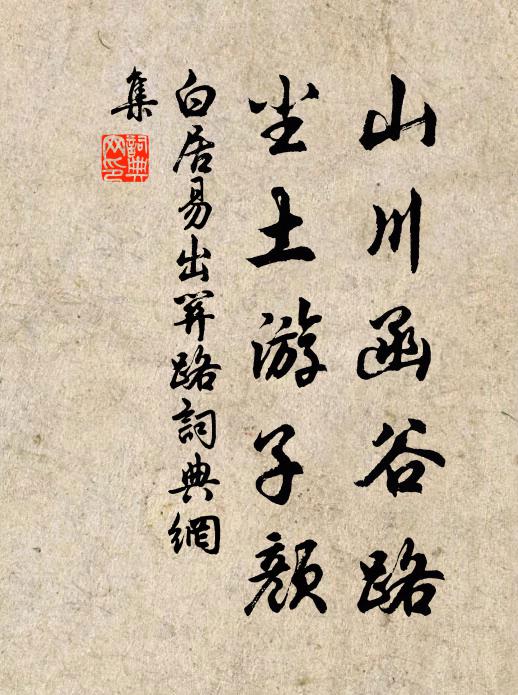 山川函谷路
尘土游子颜
白居易出关路詞典網
集
詞典网印